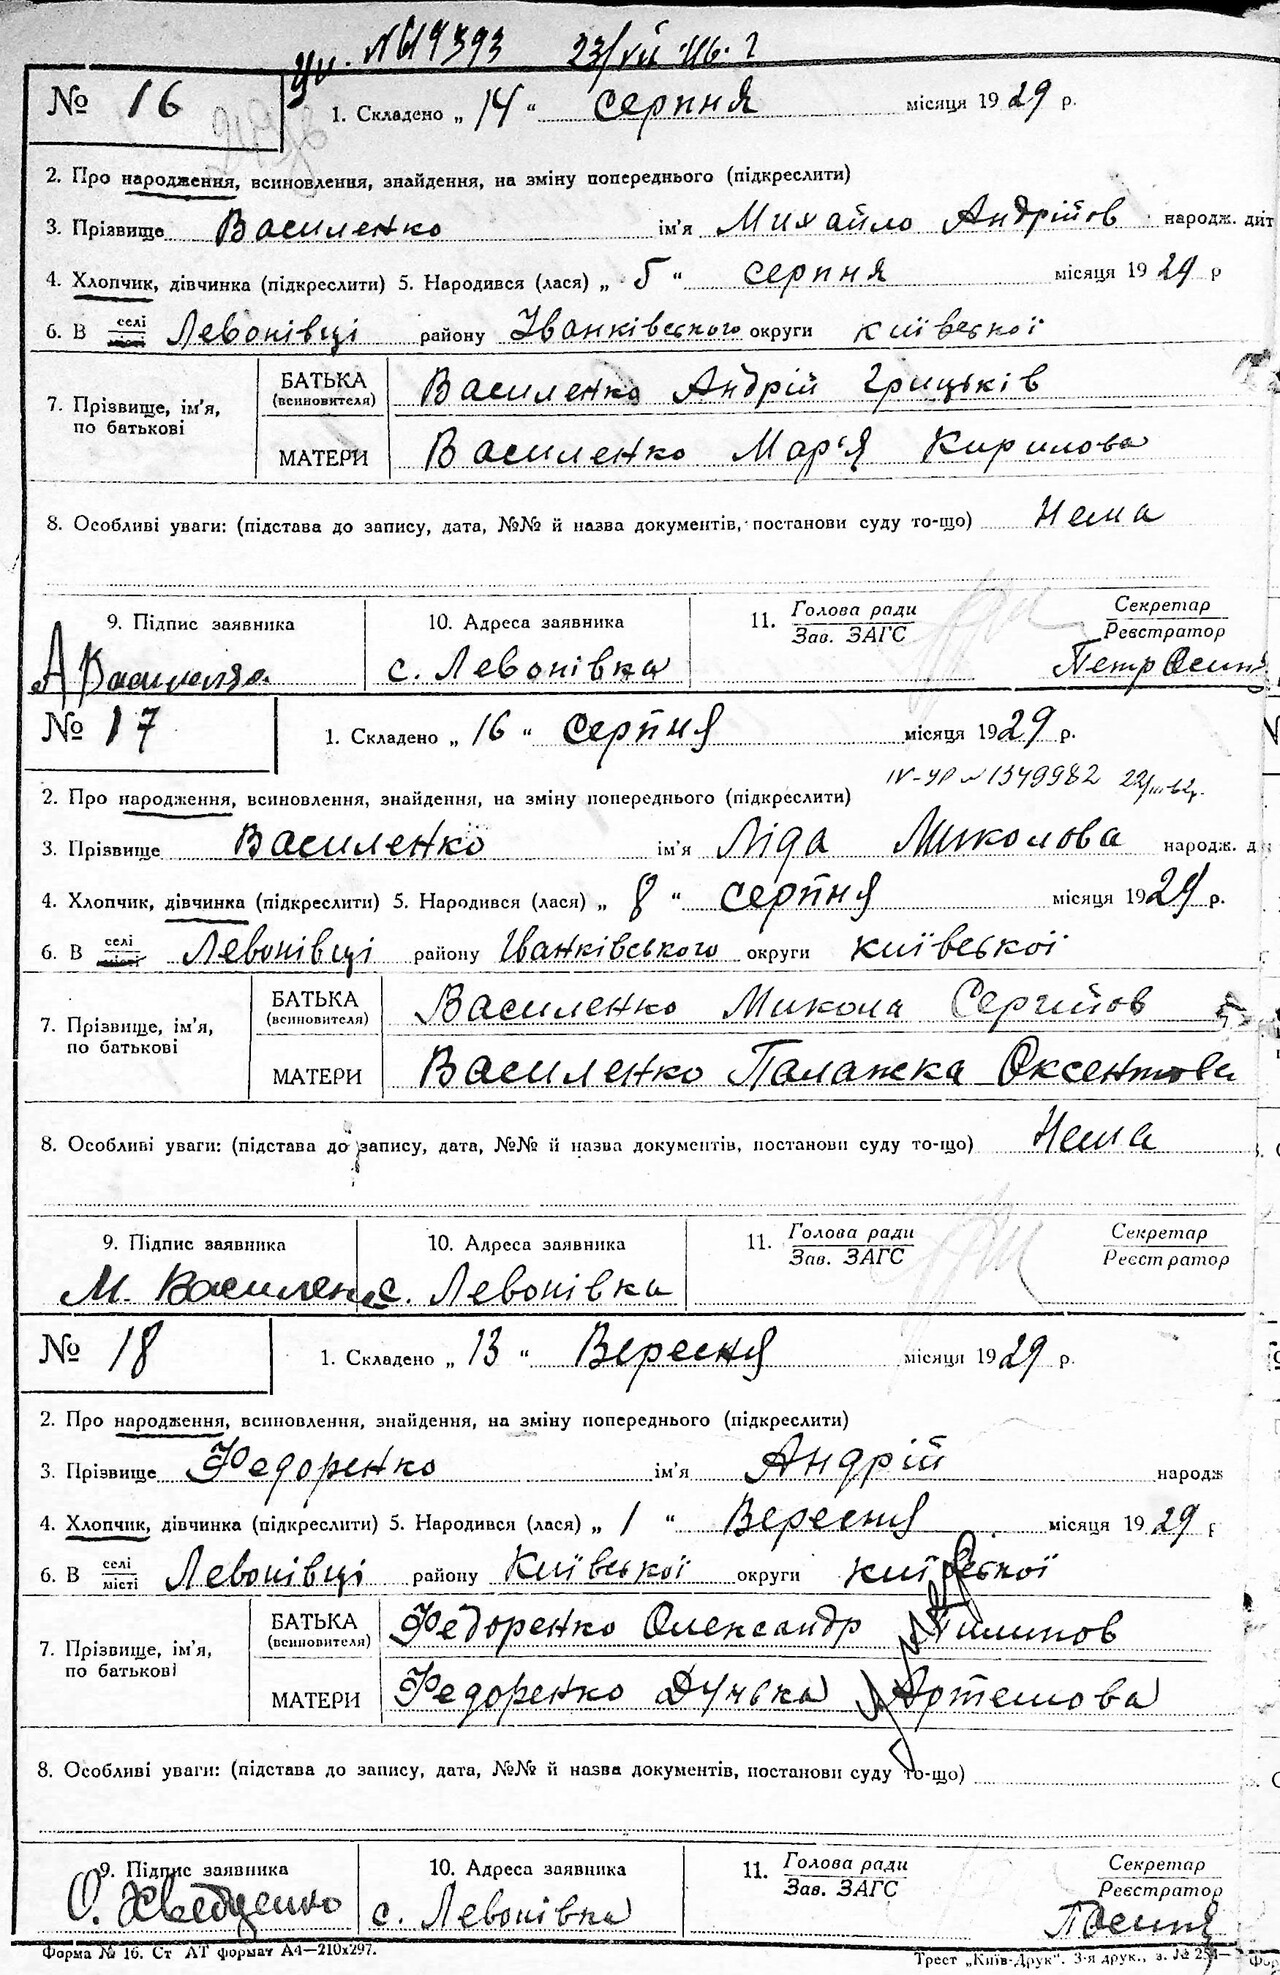 № 16
1. Складено „ 14 “ серпня місяця 1929 р.
2. Про народження, всиновлення, знайдення, на зміну попереднього (підкреслити)
3. Прізвище Василенко ім'я Михайло Андрійов народж. дит
4. Хлопчик, дівчинка (підкреслити) 5. Народився (лася) „ 5 “ серпня місяця 1929 р
6. В селі місті Левонівці району Іванківського округи київської
7. Прізвище, ім'я, по батькові
БАТЬКА (всиновителя) Василенко Андрій Грицьків
МАТЕРИ Василенко Мар'я Кирилова
8. Особливі уваги: (підстава до запису, дата, №№ й назва документів, постанови суду то-що) Нема
9. Підпис заявника 10. Адреса заявника 11. Голова ради Зав. ЗАГС Секретар Реєстратор
А Василенко с. Левонівка
№ 17
1. Складено „ 16 “ серпня місяця 1929 р.
IV-УР № 1349982
2. Про народження, всиновлення, знайдення, на зміну попереднього (підкреслити)
3. Прізвище Василенко ім'я Ліда Миколова народж. д
4. Хлопчик, дівчинка (підкреслити) 5. Народився (лася) „ 8 “ серпня місяця 1929 р.
6. В селі місті Левонівці району Іванківського округи київської
7. Прізвище, ім'я, по батькові
БАТЬКА (всиновителя) Василенко Микола Сергийов
МАТЕРИ Василенко Палажка Оксентова
8. Особливі уваги: (підстава до запису, дата, №№ й назва документів, постанови суду то-що) Нема
9. Підпис заявника 10. Адреса заявника 11. Голова ради Зав. ЗАГС Секретар Реєстратор
М. Василенко с. Левонівка
№ 18
1. Складено „ 13 “ Вересня місяця 1929 р.
2. Про народження, всиновлення, знайдення, на зміну попереднього (підкреслити)
3. Прізвище Федоренко ім'я Андрій народж
4. Хлопчик, дівчинка (підкреслити) 5. Народився (лася) „ 1 “ Вересня місяця 1929 р
6. В селі місті Левонівці району Київської округи київської
7. Прізвище, ім'я, по батькові
БАТЬКА (всиновителя) Федоренко Олександр Пилипов
МАТЕРИ Федоренко Дунька Артемова
8. Особливі уваги: (підстава до запису, дата, №№ й назва документів, постанови суду то-що)
9. Підпис заявника 10. Адреса заявника 11. Голова ради Зав. ЗАГС Секретар Реєстратор
с. Левонівка
Форма № 16. Ст АТ формат А4—210х297.
Трест „Київ-Друк“. 3-я друк., з. №